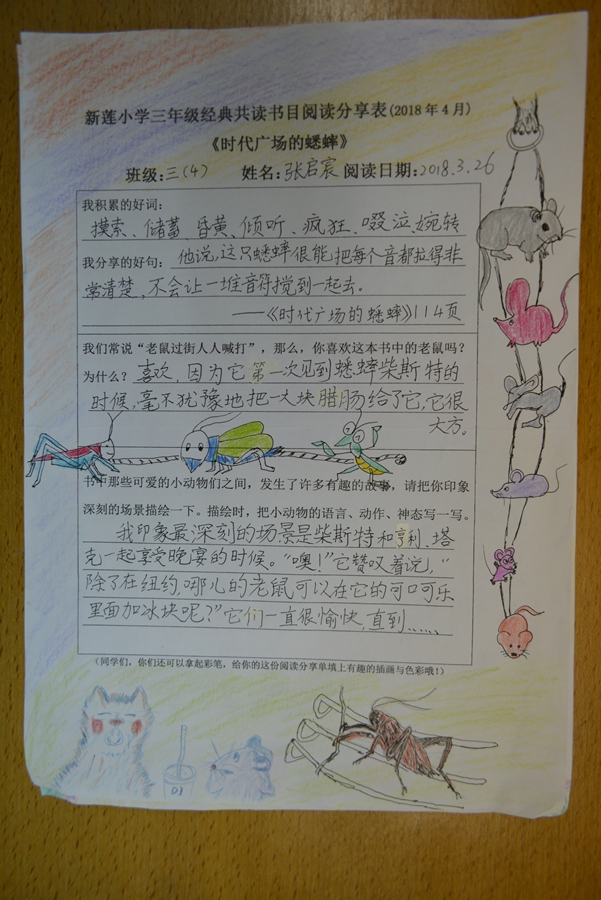 新莲小学三年级经典共读书目阅读分享表(2018年4月)
《时代广场的蟋蟀》
班级:三(4) 姓名:张启宸 阅读日期:2018.3.26
我积累的好词:
摸索、储蓄、昏黄、倾听、疯狂、啜泣、婉转
我分享的好句: 他说,这只蟋蟀很能把每个音都拉得非
常清楚,不会让一堆音符搅到一起去。
——《时代广场的蟋蟀》114页
我们常说“老鼠过街人人喊打”,那么,你喜欢这本书中的老鼠吗?
为什么?喜欢,因为它第一次见到蟋蟀柴斯特的
时候,毫不犹豫地把一大块腊肠给了它,它很
大方。
书中那些可爱的小动物们之间,发生了许多有趣的故事,请把你印象
深刻的场景描绘一下。描绘时,把小动物的语言、动作、神态写一写。
我印象最深刻的场景是柴斯特和亨利、塔
克一起享受晚宴的时候。“噢!”它赞叹着说,“
除了在纽约,哪儿的老鼠可以在它的可口可乐
里面加冰块呢?”它们一直很愉快,直到……
(同学们,你们还可以拿起彩笔,给你的这份阅读分享单填上有趣的插画与色彩哦!)